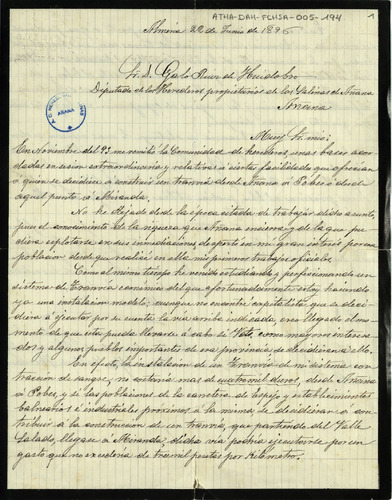 ATHA-DAH-FCHSA-005-194
1
Almeria 22 de Junio de 1895
Sr. D. Galo Ruiz de Huidobro
Diputado de los Herederos propietarios de las Salinas de Añana
Añana
AÑANA
Muy Sr. mio:
En Noviembre del 93 me remitió la Comunidad de herederos, unas bases acor
dadas en sesion extraordinaria y relativas a ciertas facilidades que ofrecian
á quien se decidiese á construir un tranvia desde Añana á Pobes ó desde
aquel punto á Miranda.
No he dejado desde la época citada de trabajar dicho asunto,
pues el conocimiento de la riqueza que Añana encierra y de la que pu
diera explotarse en sus inmediaciones desperto en mi gran interés por esa
poblacion donde realicé en ella mis primeros trabajos oficiales.
Como al mismo tiempo he venido estudiando y perfeccionando un
sistema de tranvia económico del que afortunadamente estoy haciendo
ya una instalacion modelo; aunque no encontré capitalistas que se deci
diera á ejecutar por su cuenta la via arriba indicada, creo llegado el mo
mento de que esta pueda llevarse á cabo si Vds, como mayores interesa
dos y algunos pueblos importantes de esa provincia se decidieran á ello.
En efecto, la instalacion de un tranvia de mi sistema con
traccion de sangre, no costaria mas de cuatro mil duros, desde Añana
á Pobes, y si las poblaciones de la carretera de Espejo y establecimientos
balnearios é industriales proximos á la misma se decidieran á con
tribuir á la construccion de un tranvia, que partiendo del Valle
Salado, llegase á Miranda, dicha via podria ejecutarse por un
gasto que no excederia de tres mil pesetas por Kilometro.